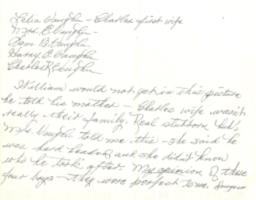 Lelia Vaughn - Charles first wife
Mrs. C. Vaughn -
Ben B. Vaughn
Harry C. Vaughn
Charles R. Vaughn
William would not get in this picture
he told his mother - Charles wife wasn't
really their family. Real stubborn kids,
Mrs Vaughn told me this - she said he
was hard headed and she didn't know
who he took after. My opinion of those
four boys - they were perfect to me.